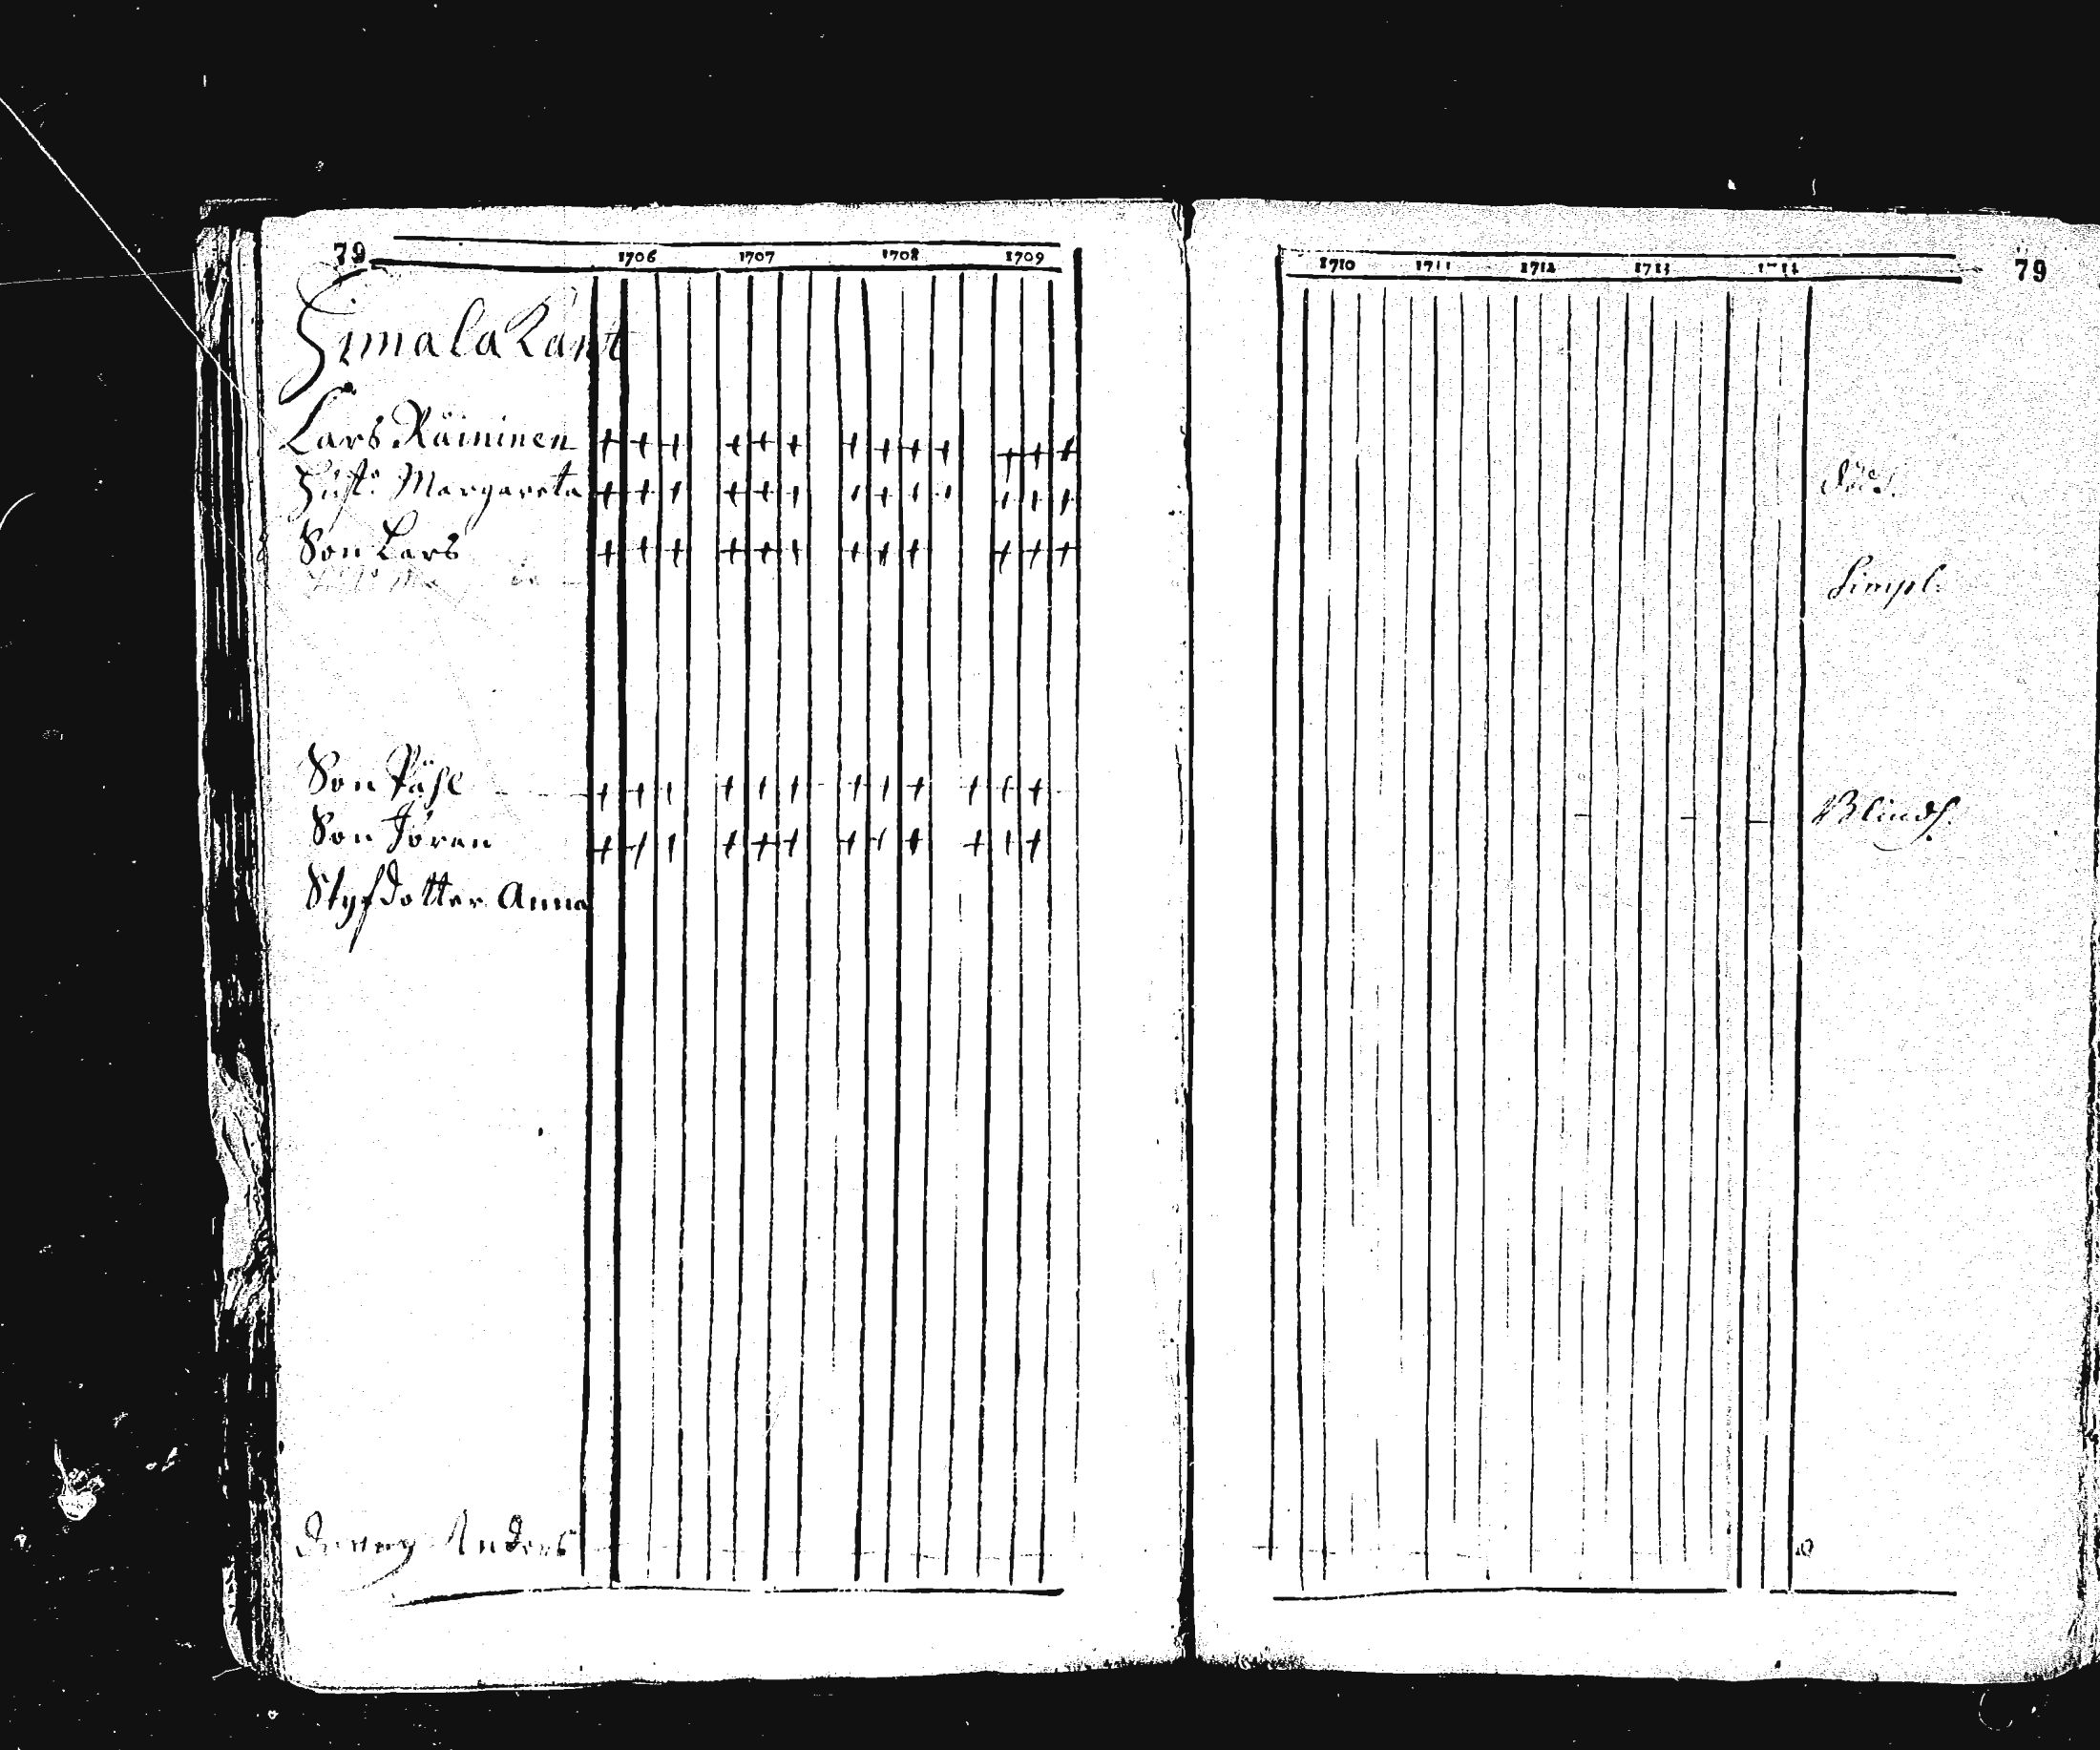 79 1706 1707 1708 1709
Simala Kant
Lars Räininen
Hust: Margareta
Son Lars
Son Påhl
Son Jören
Styfdotter Anna
Dreng Anders
1710 1711 1712 1713 1714 79
Död.
Simpl.
Blindh.